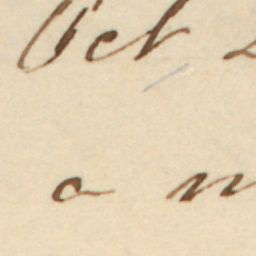 Oct 2
a m